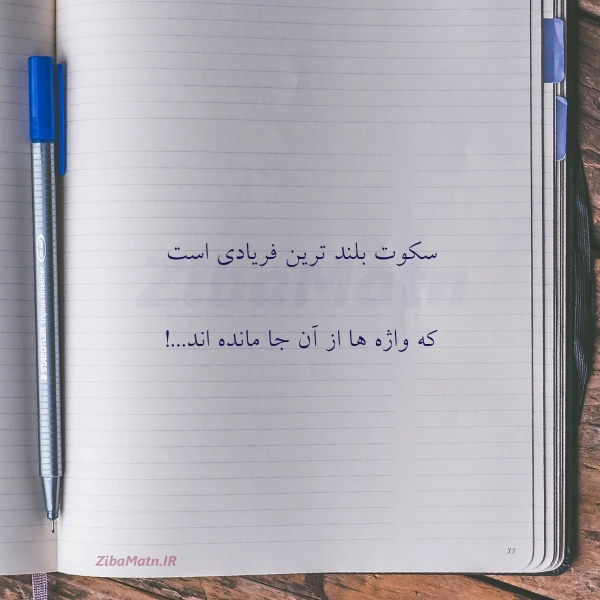 سکوت بلند ترین فریادی است
که واژه ها از آن جا مانده اند...!
ZibaMatn.IR
77